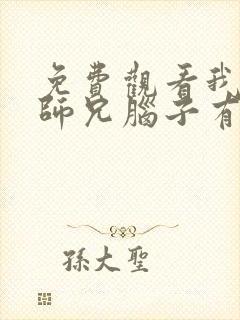 免費觀看我
師兄腦子有
孫大聖